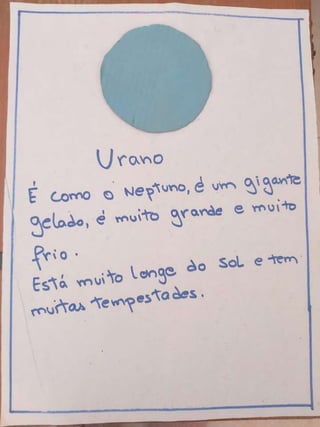 Urano
É como o Neptuno, é um gigante
gelado, é muito grande e muito
frio.
Está muito longe do Sol e tem
muitas tempestades.